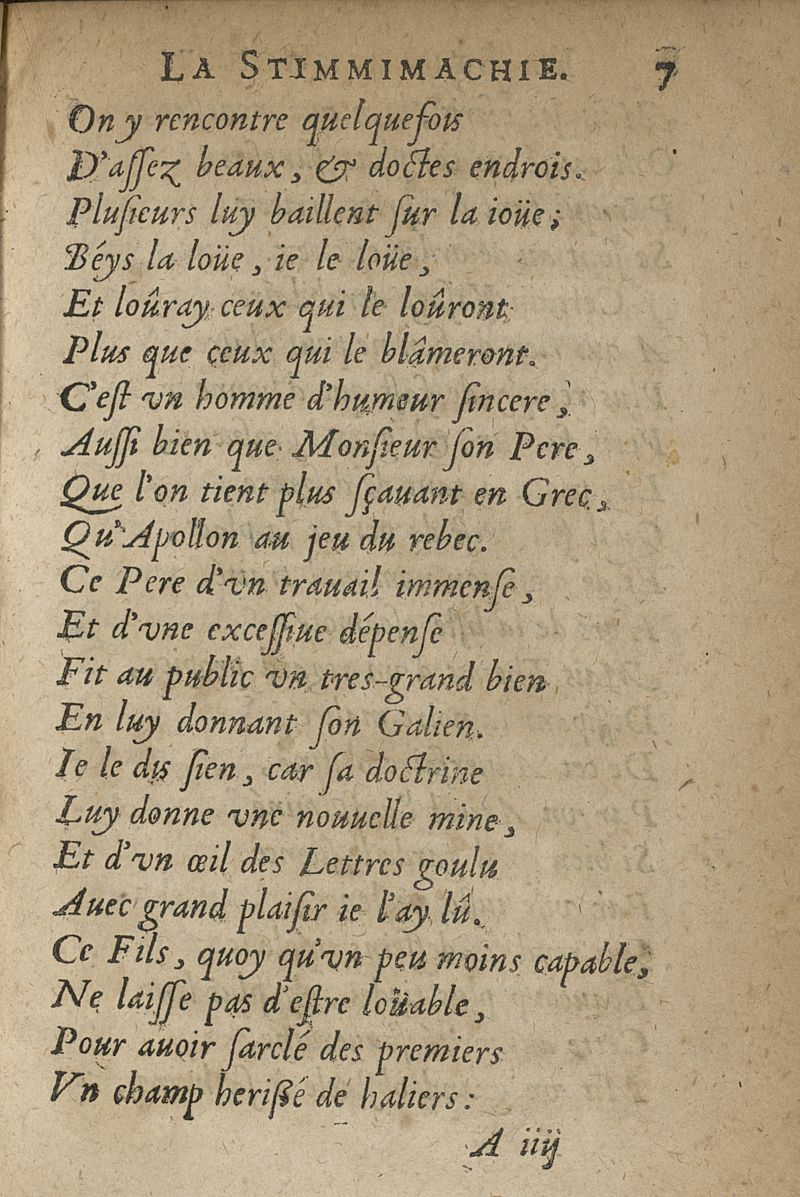 LA STIMMIMACHIE. 7
On y rencontre quelquefois
D'aſſez beaux, & doctes endrois.
Pluſieurs luy baillent ſur la ioüe;
Béys la loüe, ie le loüe,
Et loûray ceux qui le loûront
Plus que ceux qui le blâmeront.
C'eſt vn homme d'humeur ſincere,
Auſſi bien que Monſieur ſon Pere,
Que l'on tient plus ſçauant en Grec,
Qu'Apollon au jeu du rebec.
Ce Pere d'vn trauail immenſe,
Et d'vne exceſſiue dépenſe
Fit au public vn tres-grand bien
En luy donnant ſon Galien.
Ie le dis ſien, car ſa doctrine
Luy donne vne nouuelle mine,
Et d'vn œil des Lettres goulu
Auec grand plaiſir ie l'ay lû.
Ce Fils, quoy qu'vn peu moins capable,
Ne laiſſe pas d'eſtre loüable,
Pour auoir ſarclé des premiers
Vn champ heriſſé de haliers:
A iiij